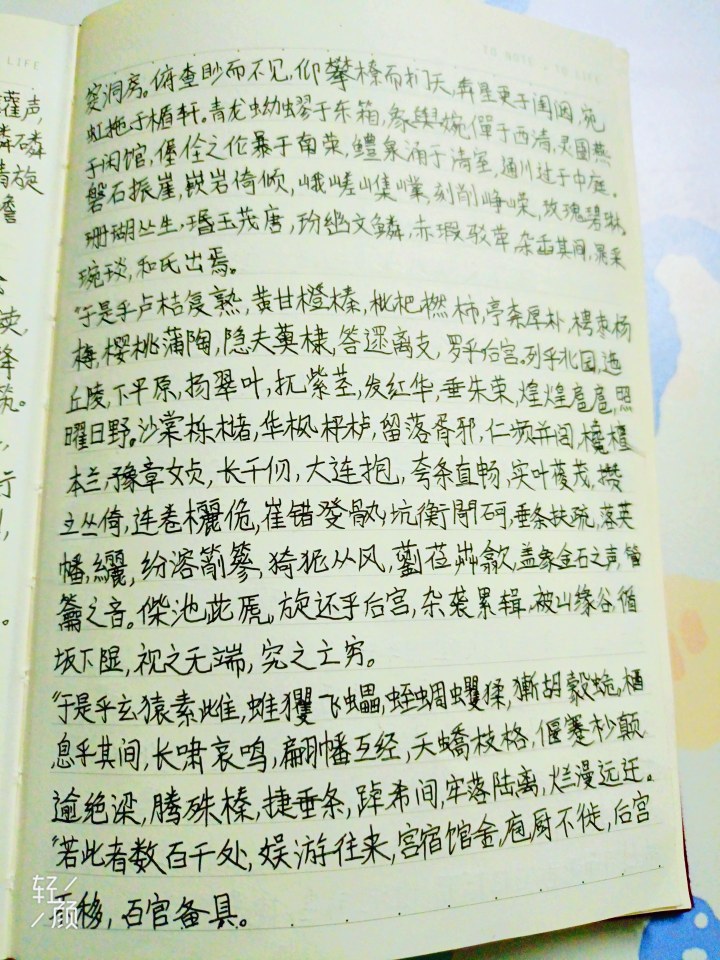 LIFE
TO NOTE · TO LIFE
灌声,
磷磷
旋
读,
降
筑。
行
。
窔洞房。俯查眇而不见,仰攀橑而扪天,奔星更于闺闼,宛
虹拖于楯轩。青龙蚴蟉于东箱,象舆婉僤于西清,灵圄燕
于闲馆,偓佺之伦暴于南荣,醴泉涌于清室,通川过于中庭。
磐石振崖,嵚岩倚倾,嵯峨嶫,刻削峥嵘,玫瑰碧琳,
珊瑚丛生,瑉玉茂唐,玢豳文鳞,赤瑕驳荦,杂臿其间,晁采
琬琰,和氏出焉。
“于是乎卢桔复熟,黄甘橙榛,枇杷橪柿,亭柰厚朴,梬枣杨
梅,樱桃蒲陶,隐夫薁棣,答遝离支,罗乎后宫,列乎北园,迤
丘陵,下平原,扬翠叶,扤紫茎,发红华,垂朱荣,煌煌扈扈,照
曜日野。沙棠栎槠,华枫枰栌,留落胥邪,仁频并闾,欃檀
木兰,豫章女贞,长千仞,大连抱,夸条直畅,实叶葰茂,攒
立丛倚,连卷欐佹,崔错癹骫,坑衡閜砢,垂条扶疏,落英
幡纚,纷溶箾蔘,猗狔从风,藰莅芔歙,盖象金石之声,管
籥之音。傑池茈虒,旋还乎后宫,杂袭累辑,被山缘谷,循
坂下隰,视之无端,究之亡穷。
“于是乎玄猿素雌,蜼玃飞蠝,蛭蜩蠼猱,獑胡豰蛫,栖
息乎其间,长啸哀鸣,翩幡互经,夭蟜枝格,偃蹇杪颠,
逾绝梁,腾殊榛,捷垂条,踔希间,牢落陆离,烂漫远迁。
“若此者数百千处,娱游往来,宫宿馆舍,庖厨不徙,后宫
不移,百官备具。
轻颜